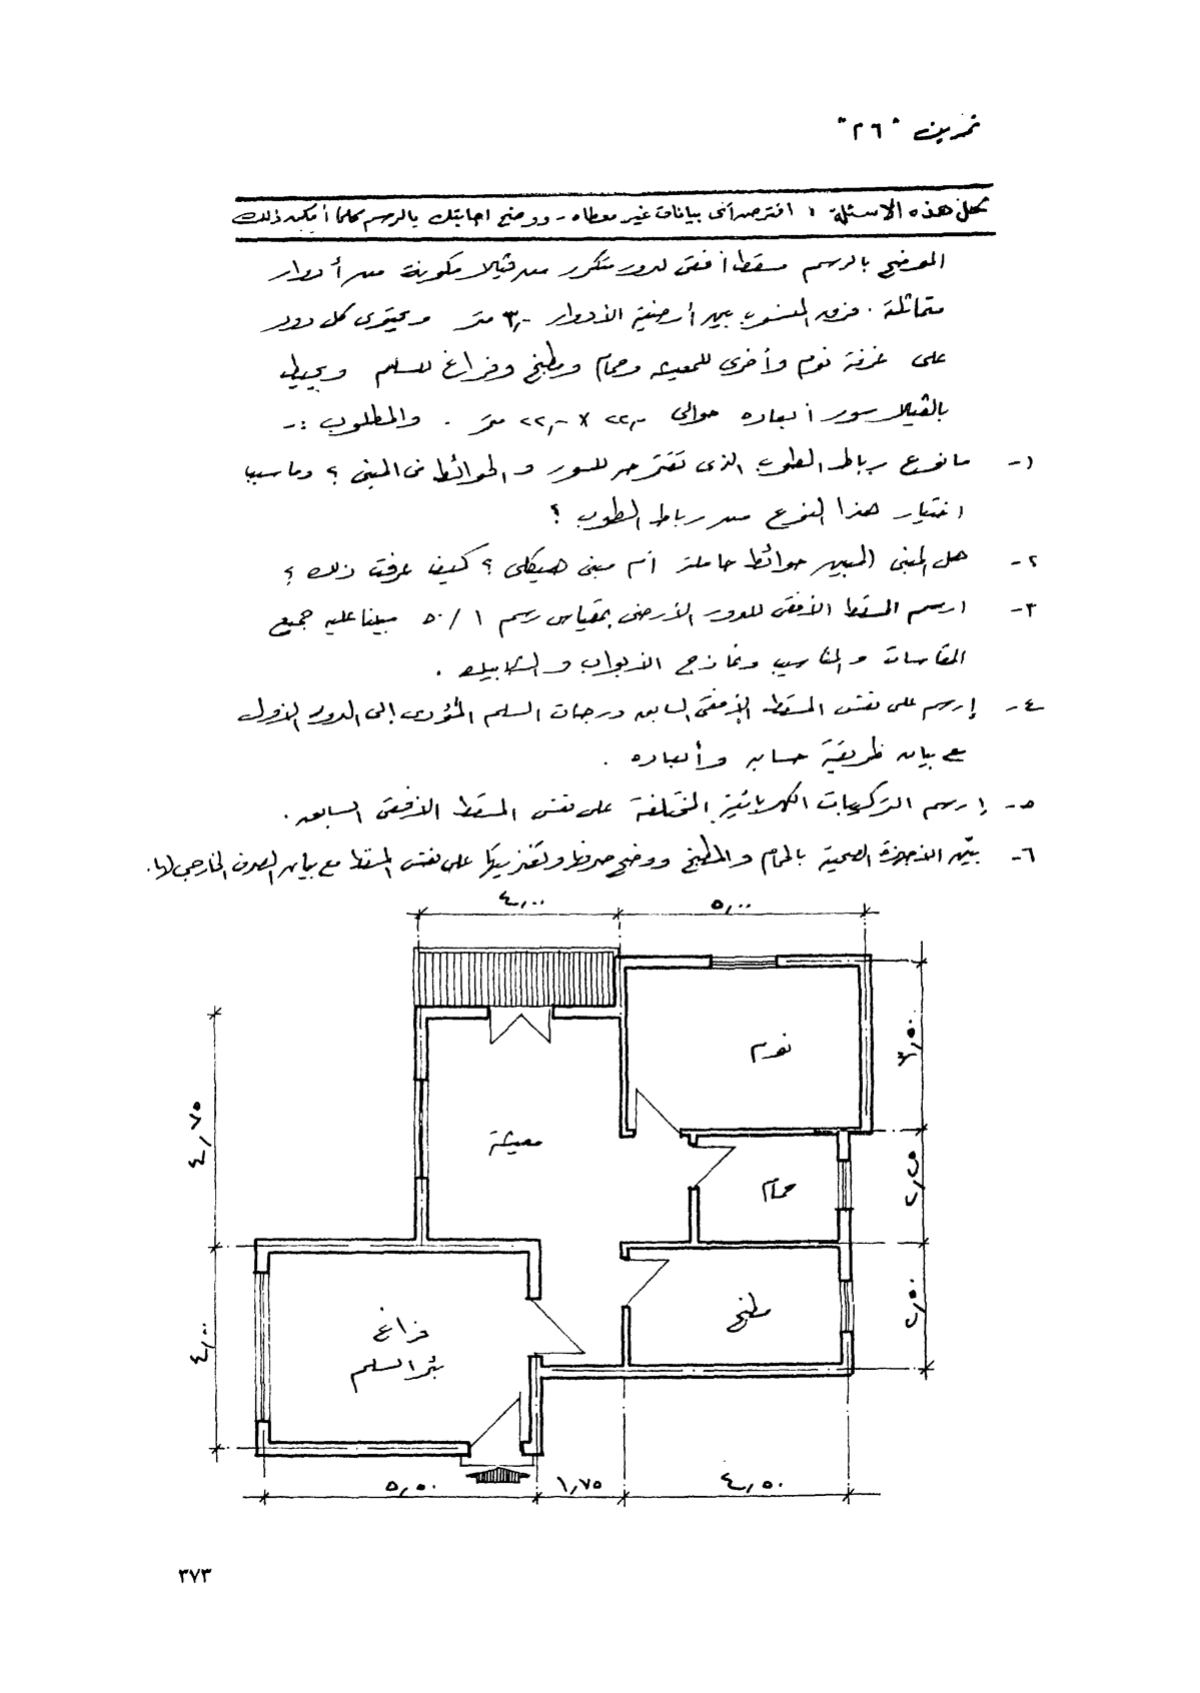 تمرين "٢٦"
لحل هذه الاسئلة : افترض أى بيانات غير معطاه - ووضح اجابتك بالرسم كلما أمكن ذلك
الموضح بالرسم مسقط أفقى لدور متكرر من فيلا مكونة من أدوار
متماثلة . فرق المنسوب بين أرضية الأدوار ٣,٠٠ متر ويحتوى كل دور
على غرفة نوم وأخرى للمعيشه وحمام ومطبخ وفراغ للسلم ويحيط
بالفيلا سور أبعاده حوالى ٢٢,٠٠ × ٢٢,٠٠ متر . والمطلوب :-
١- ما نوع رباط الطوب الذى تقترحه للسور والحوائط فى المبنى ؟ وما سبب
اختيار هذا النوع من رباط الطوب ؟
٢- هل المبنى المبين حوائط حاملة أم مبنى هيكلى ؟ كيف عرفت ذلك ؟
٣- ارسم المسقط الأفقى للدور الأرضى بمقياس رسم ١ / ٥٠ مبينا عليه جميع
المقاسات والمناسيب ونماذج الأبواب والشبابيك .
٤- إرسم على نفس المسقط الأفقى السابق درجات السلم المؤدى إلى الدور الأول
مع بيان طريقة حسابه وأبعاده .
٥- إرسم التركيبات الكهربائية المختلفة على نفس المسقط الأفقى السابق .
٦- بيّن الأجهزة الصحية بالحمام والمطبخ ووضح صرفها وتغذيتها على نفس المسقط مع بيان الصرف الخارجى لها .
٤,٠٠ ٥,٠٠
نوم
٣,٥٠
معيشة
٤,٧٥
حمام
٢,٢٥
مطبخ
٢,٥٠
فراغ
بئر السلم
٤,٠٠
٥,٥٠ ١,٧٥ ٤,٥٠
٣٧٣